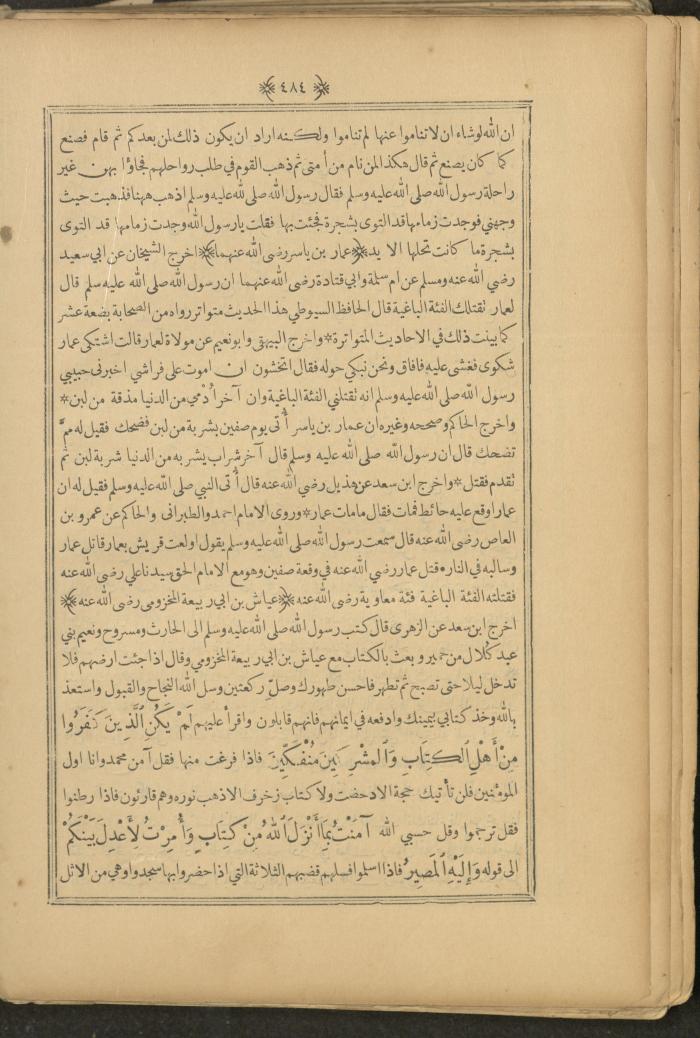 ﴿ ٤٨٤ ﴾
ان الله لوشاء ان لا تناموا عنها لم تناموا ولكنه اراد ان يكون ذلك لمن بعدكم ثم قام فصنع
كما كان يصنع ثم قال هكذا لمن نام من أمتى ثم ذهب القوم في طلب رواحلهم فجاؤا بهن غير
راحلة رسول الله صلى الله عليه وسلم فقال رسول الله صلى الله عليه وسلم اذهب ههنا فذهبت حيث
وجهني فوجدت زمامها قد التوى بشجرة فجئت بها فقلت يارسول الله وجدت زمامها قد التوى
بشجرة ما كانت تحلها الا يد ﴿عمار بن ياسر رضى الله عنهما﴾ اخرج الشيخان عن ابي سعيد
رضي الله عنه ومسلم عن ام سلمة وابي قتادة رضى الله عنهما ان رسول الله صلى الله عليه سلم قال
لعمار نقتلك الفئة الباغية قال الحافظ السيوطي هذا الحديث متواتر رواه من الصحابة بضعة عشر
كما بينت ذلك في الاحاديث المتواترة * واخرج البيهقي وابو نعيم عن مولاة لعمار قالت اشتكى عمار
شكوى فغشى عليه فافاق ونحن نبكي حوله فقال اتخشون ان اموت على فراشي اخبرنى حبيبي
رسول الله صلى الله عليه وسلم انه نقتلني الفئة الباغية وان آخر أدمي من الدنيا مذقة من لبن *
واخرج الحاكم وصححه وغيره ان عمار بن ياسر أتى يوم صفين بشربة من لبن فضحك فقيل له ممَّ
تضحك قال ان رسول الله صلى الله عليه وسلم قال آخر شراب يشربه من الدنيا شربة لبن ثم
نقدم فقتل * واخرج ابن سعد عن هذيل رضي الله عنه قال أتى النبي صلى الله عليه وسلم فقيل له ان
عمارا وقع عليه حائط فمات فقال مامات عمار * وروى الامام احمد والطبرانى والحاكم عن عمرو بن
العاص رضى الله عنه قال سمعت رسول الله صلى الله عليه وسلم يقول اولعت قريش بعمار قاتل عمار
وسالبه في النار • قتل عمار رضي الله عنه في وقعة صفين وهو مع الامام الحق سيدنا علي رضي الله عنه
فقتلته الفئة الباغية فئة معاوية رضى الله عنه ﴿عياش بن ابي ربيعة المخزومى رضى الله عنه﴾
اخرج ابن سعد عن الزهرى قال كتب رسول الله صلى الله عليه وسلم الى الحارث ومسروح ونعيم بني
عبد كُلال من حمير و بعث بالكتاب مع عياش بن ابي ربيعة المخزومي وقال اذا جئت ارضهم فلا
تدخل ليلا حتى تصبح ثم تطهر فاحسن طهورك وصلِّ ركعتين وسل الله النجاح والقبول واستعذ
بالله وخذ كتابي بيمينك وادفعه في ايمانهم فانهم قابلون واقرأ عليهم لَمْ يَكُنِ الَّذِينَ كَفَرُوا
مِنْ أَهْلِ الْكِتَابِ وَالْمُشْرِكِينَ مُنْفَكِّينَ فاذا فرغت منها فقل آمن محمد وانا اول
المؤمنين فلن تأتيك حجة الا دحضت ولا كتاب زخرف الا ذهب نوره وهم قارئون فاذا رطنوا
فقل ترجموا وقل حسبي الله آمَنْتُ بِمَا أَنْزَلَ اللهُ مِنْ كِتَابٍ وَأُمِرْتُ لِأَعْدِلَ بَيْنَكُمْ
الى قوله وَإِلَيْهِ الْمَصِيرُ فاذا اسلموا فسلهم قضبهم الثلاثة التي اذا حضروا بها سجدوا وهي من الاثل